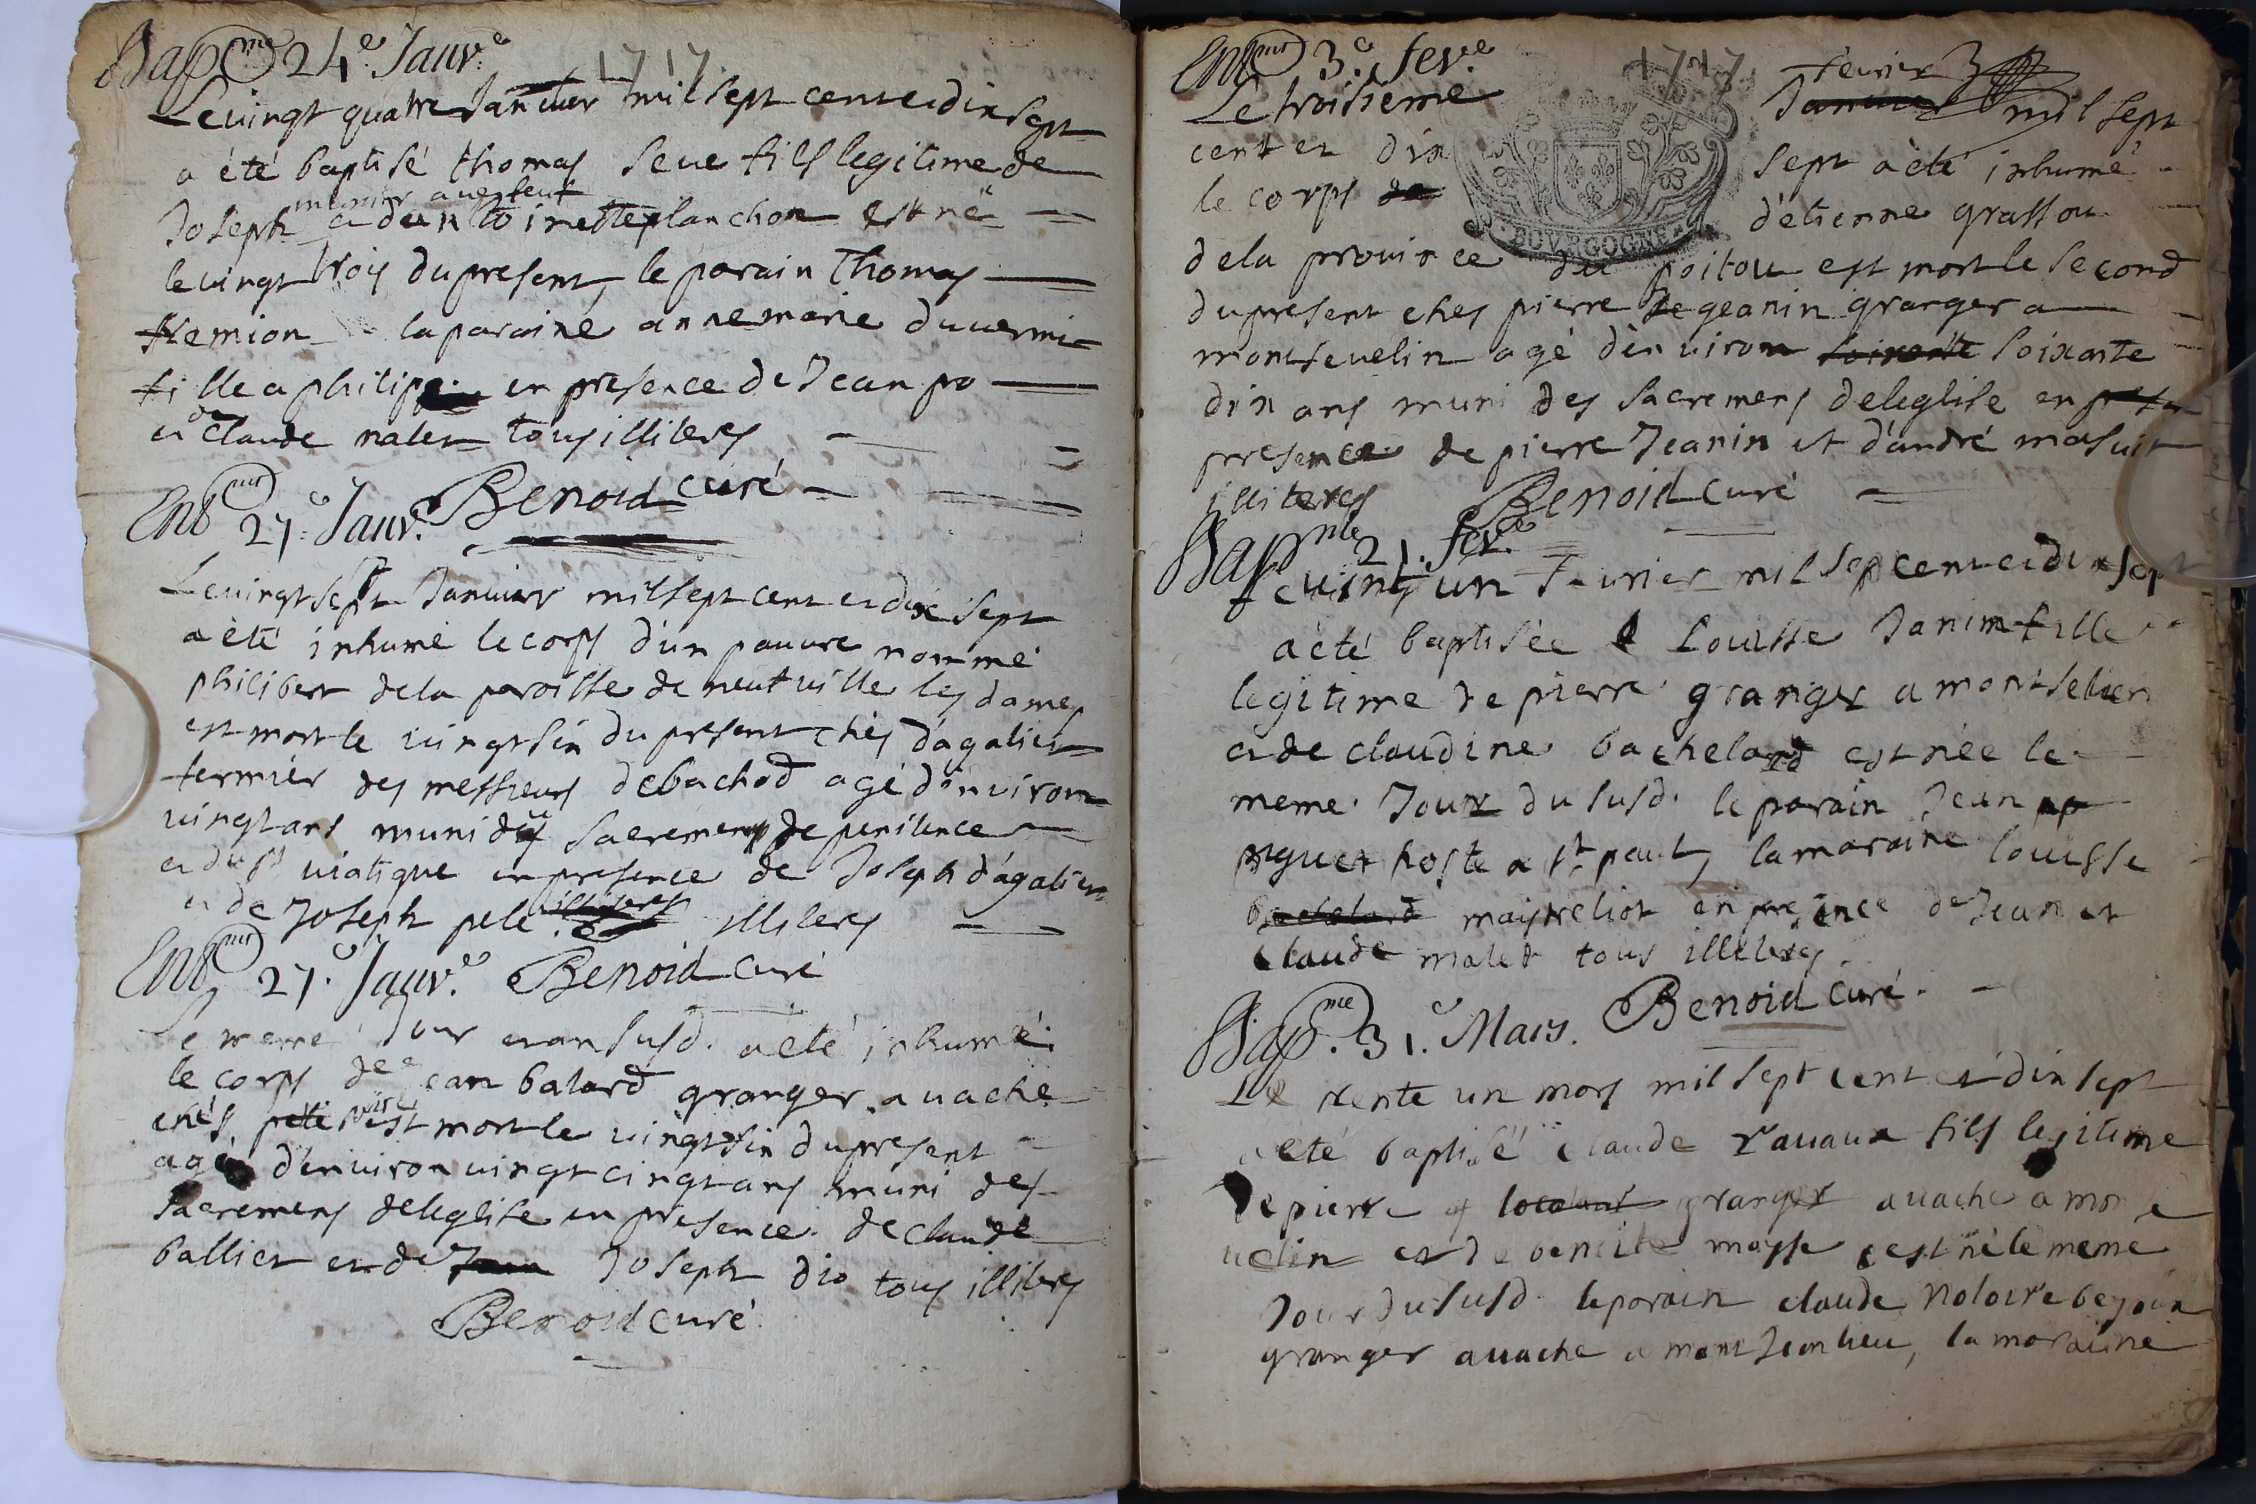 Bap.me 24.e Janv.e
1717.
Le vingt quatre Janvier mil sept cent et dix sept
a été baptisé thomas seve fils legitime de
munier avegleut
Joseph et de antoinette planchon est né
le vingt trois du present, le parain Thomas
tremion la paraine anne marie duvermi
fille a philipe en presence de Jean po
et de claude nalet tous illiteres
Benoid curé
Ent.mt 27.e Janv.e
Le vingt sept Janvier mil sept cent et dix sept
a été inhumé le corps d'un pauvre nommé
philibert de la paroisse de neufville les dames
est mort le vingt six du present chés d'agalier
fermier des messieurs de bachod agé d'environ
vingt ans muni des sacremens de penitence
et du st viatique en presence de Joseph d'agalier
et de Joseph pele illiteres illiteres
Ent.mt 27.e Janv.e Benoid curé
Le meme Jour et an susd. a été inhumé
le corps de Jean balard granger a vache
chés est mort le vingt six du present
agé d'environ vingt cinq ans muni des
sacremens de leglise en presence de claude
ballier et de Jean Joseph dio tous illiteres
Benoid curé
Ent.mt 3.e fev.e
1717.
fevrier 3
Le troisieme Janvier mil sept
cent et dix sept a été inhumé
le corps de d'etienne grassou
BOVRGOGNE
de la province du poitou est mort le second
du present ches pierre Je geanin granger a
montsevelin agé d'environ soixante soixante
dix ans muni des sacremens de leglise en presen
presence de pierre Jeanin et d'andré masuit
illiteres Benoid curé
Bap.me 21. fev.e
Le vingt un fevrier mil sept cent et dix sept
a été baptisée Louisse Janin fille
legitime de pierre granger a montselven
et de claudine bachelard est née le
meme Jour du susd. le parain Jean
piguet hoste a st paul, la maraine louisse
bachelard maistreliot en presence de Jean et
claude malet tous illiteres.
Benoid curé.
Bap.me 31.e Mars.
Le trente un mars mil sept cent et dix sept
a été baptisé claude ravaux fils legitime
de pierre locatant granger a vache a mont se
velin et de benoite maysse est né le meme
Jour du susd. le parain claude Noloire bejoin
granger a vache a mont Jonlieu, la maraine